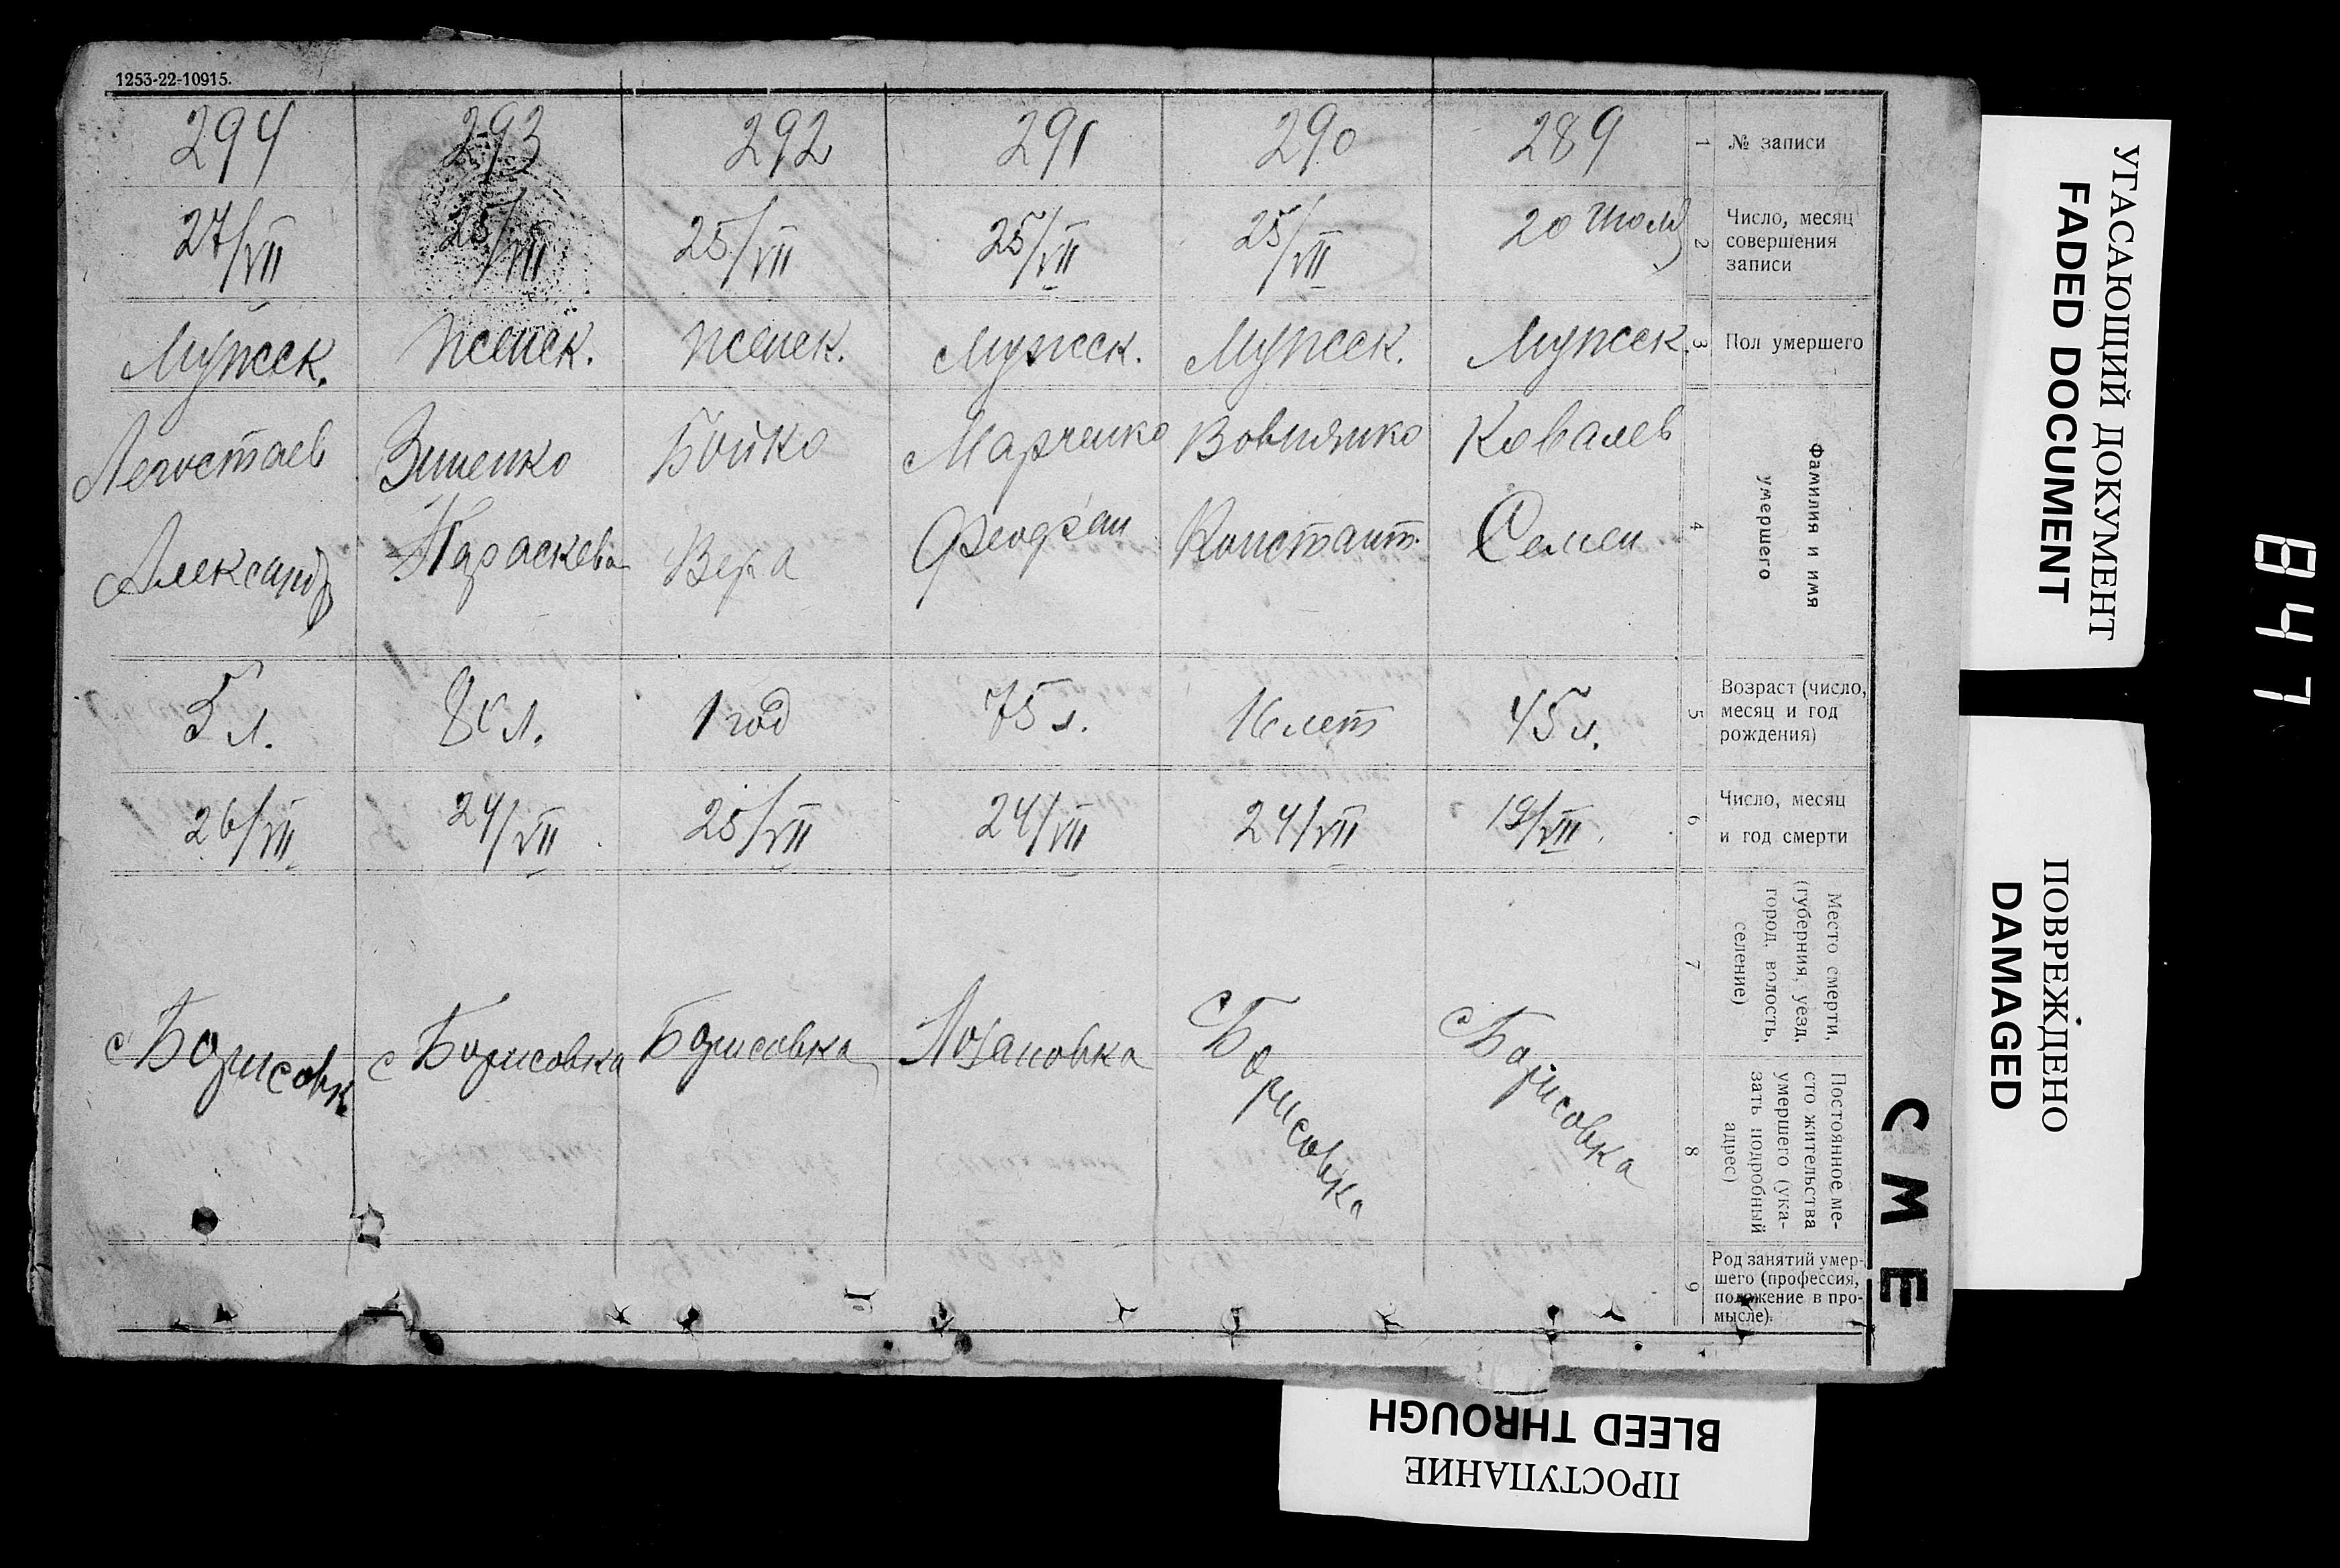 1253-22-10915.
294 293 292 291 290 289 1 № записи
27/VII 25/VII 25/VII 25/VII 25/VII 20 июля 2 Число, месяц совершения записи
Мужск. женск. женск. Мужск. Мужск. Мужск. 3 Пол умершего
Легостаев Зиненко Бойко Марченко Ковалев
Александр Параскева Вера Феофан Констант. Семен 4 Фамилия и имя умершего
5 л. л. 1 год 75 л. 16 лет 45 л. 5 Возраст (число, месяц и год рождения)
26/VII 24/VII 25/VII 24/VII 24/VII 19/VII. 6 Число, месяц и год смерти
7 Место смерти, (губерния, уезд, город, волость, селение)
с Борисовк с Борисовка Борисовка Лозановка с Борисовка с Борисовка
8 Постоянное место жительства умершего (указать подробный адрес)
9 Род занятий умершего (профессия, положение в промысле).
СМЕ
УГАСАЮЩИЙ ДОКУМЕНТ
FADED DOCUMENT
ПОВРЕЖДЕНО
DAMAGED
BLEED THROUGH
ПРОСТУПАНИЕ
847